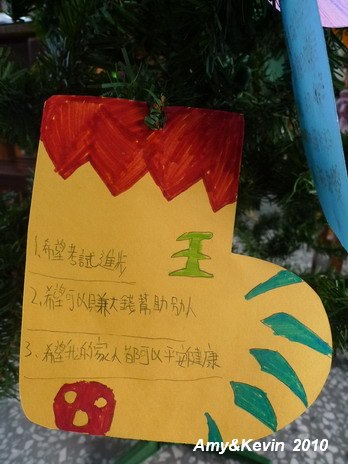 王
1、希望考試進步
2、希望可以賺大錢幫助別人
3、希望我的家人都可以平安健康
Amy&Kevin 2010